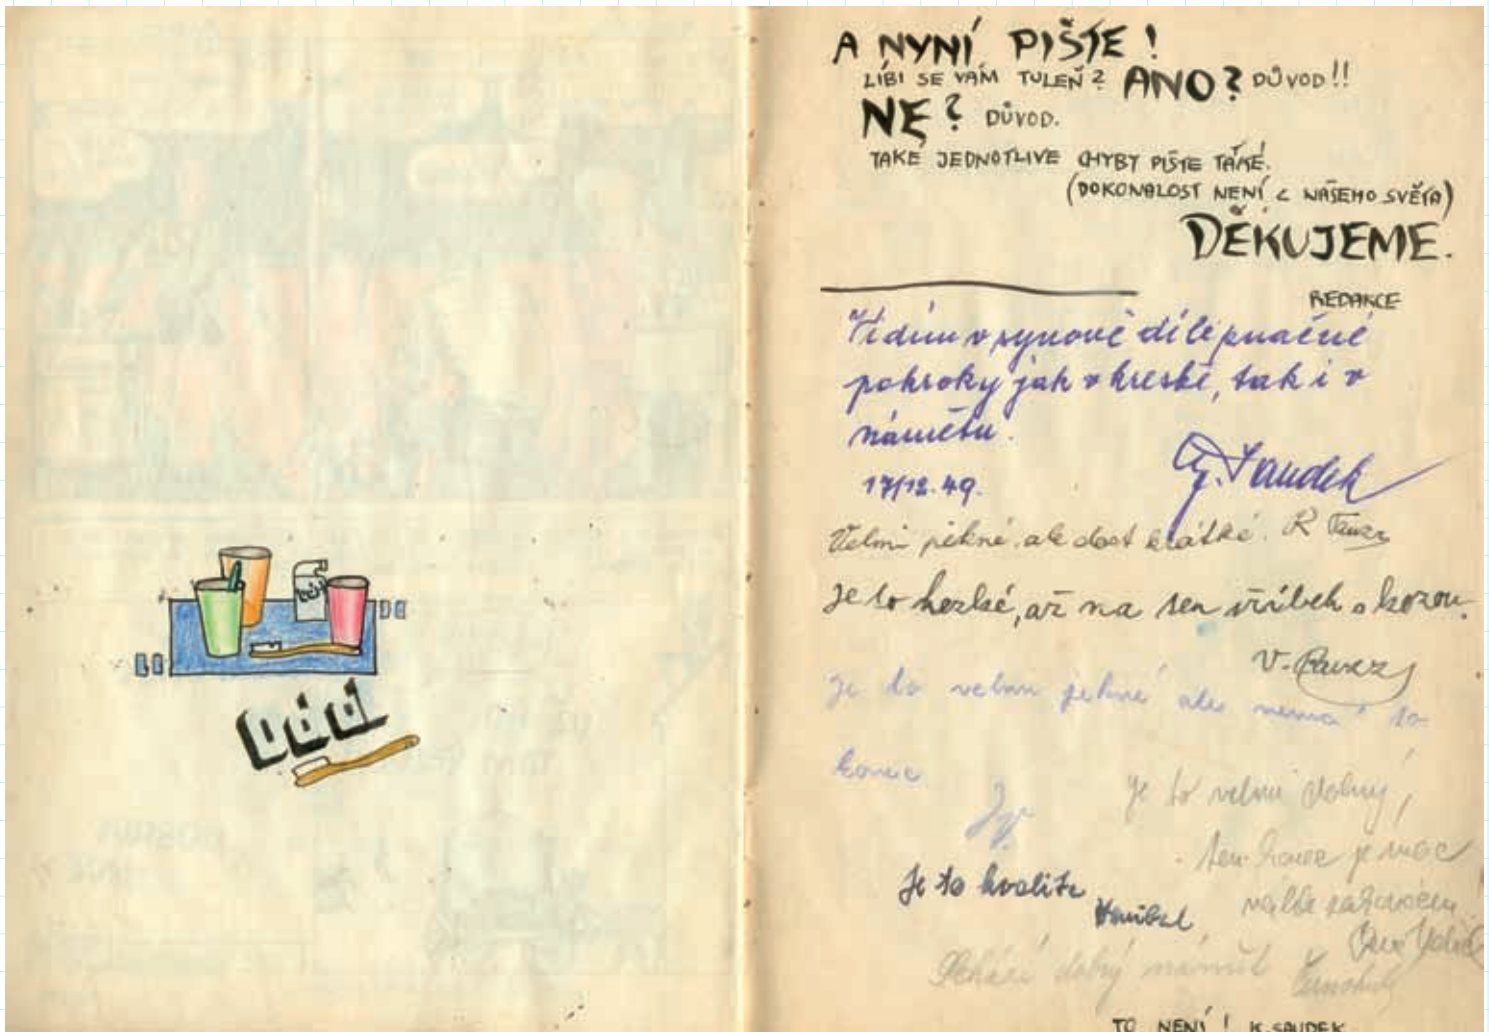 A NYNÍ PIŠTE!
LÍBI SE VÁM TULEŇ? ANO? DŮVOD!!
NE? DŮVOD.
TAKÉ JEDNOTLIVE CHYBY PIŠTE TAKÉ.
(DOKONALOST NENÍ Z NAŠEHO SVĚTA)
DĚKUJEME.
REDAKCE
Vidím v synově díle značné
pokroky jak v kresbě, tak i v
námětu.
17/12.49. G. Saudek
Velmi pěkné ale dost krátké. R
Je to hezké, až na ten příběh s kozou.
V.
Je to velmi pěkné ale nemá to
konec
Je to velmi dobrý,
ten konec je moc
Je to kvalita
Hanibal
dobrý námět
TO NENÍ! K. SAUDEK